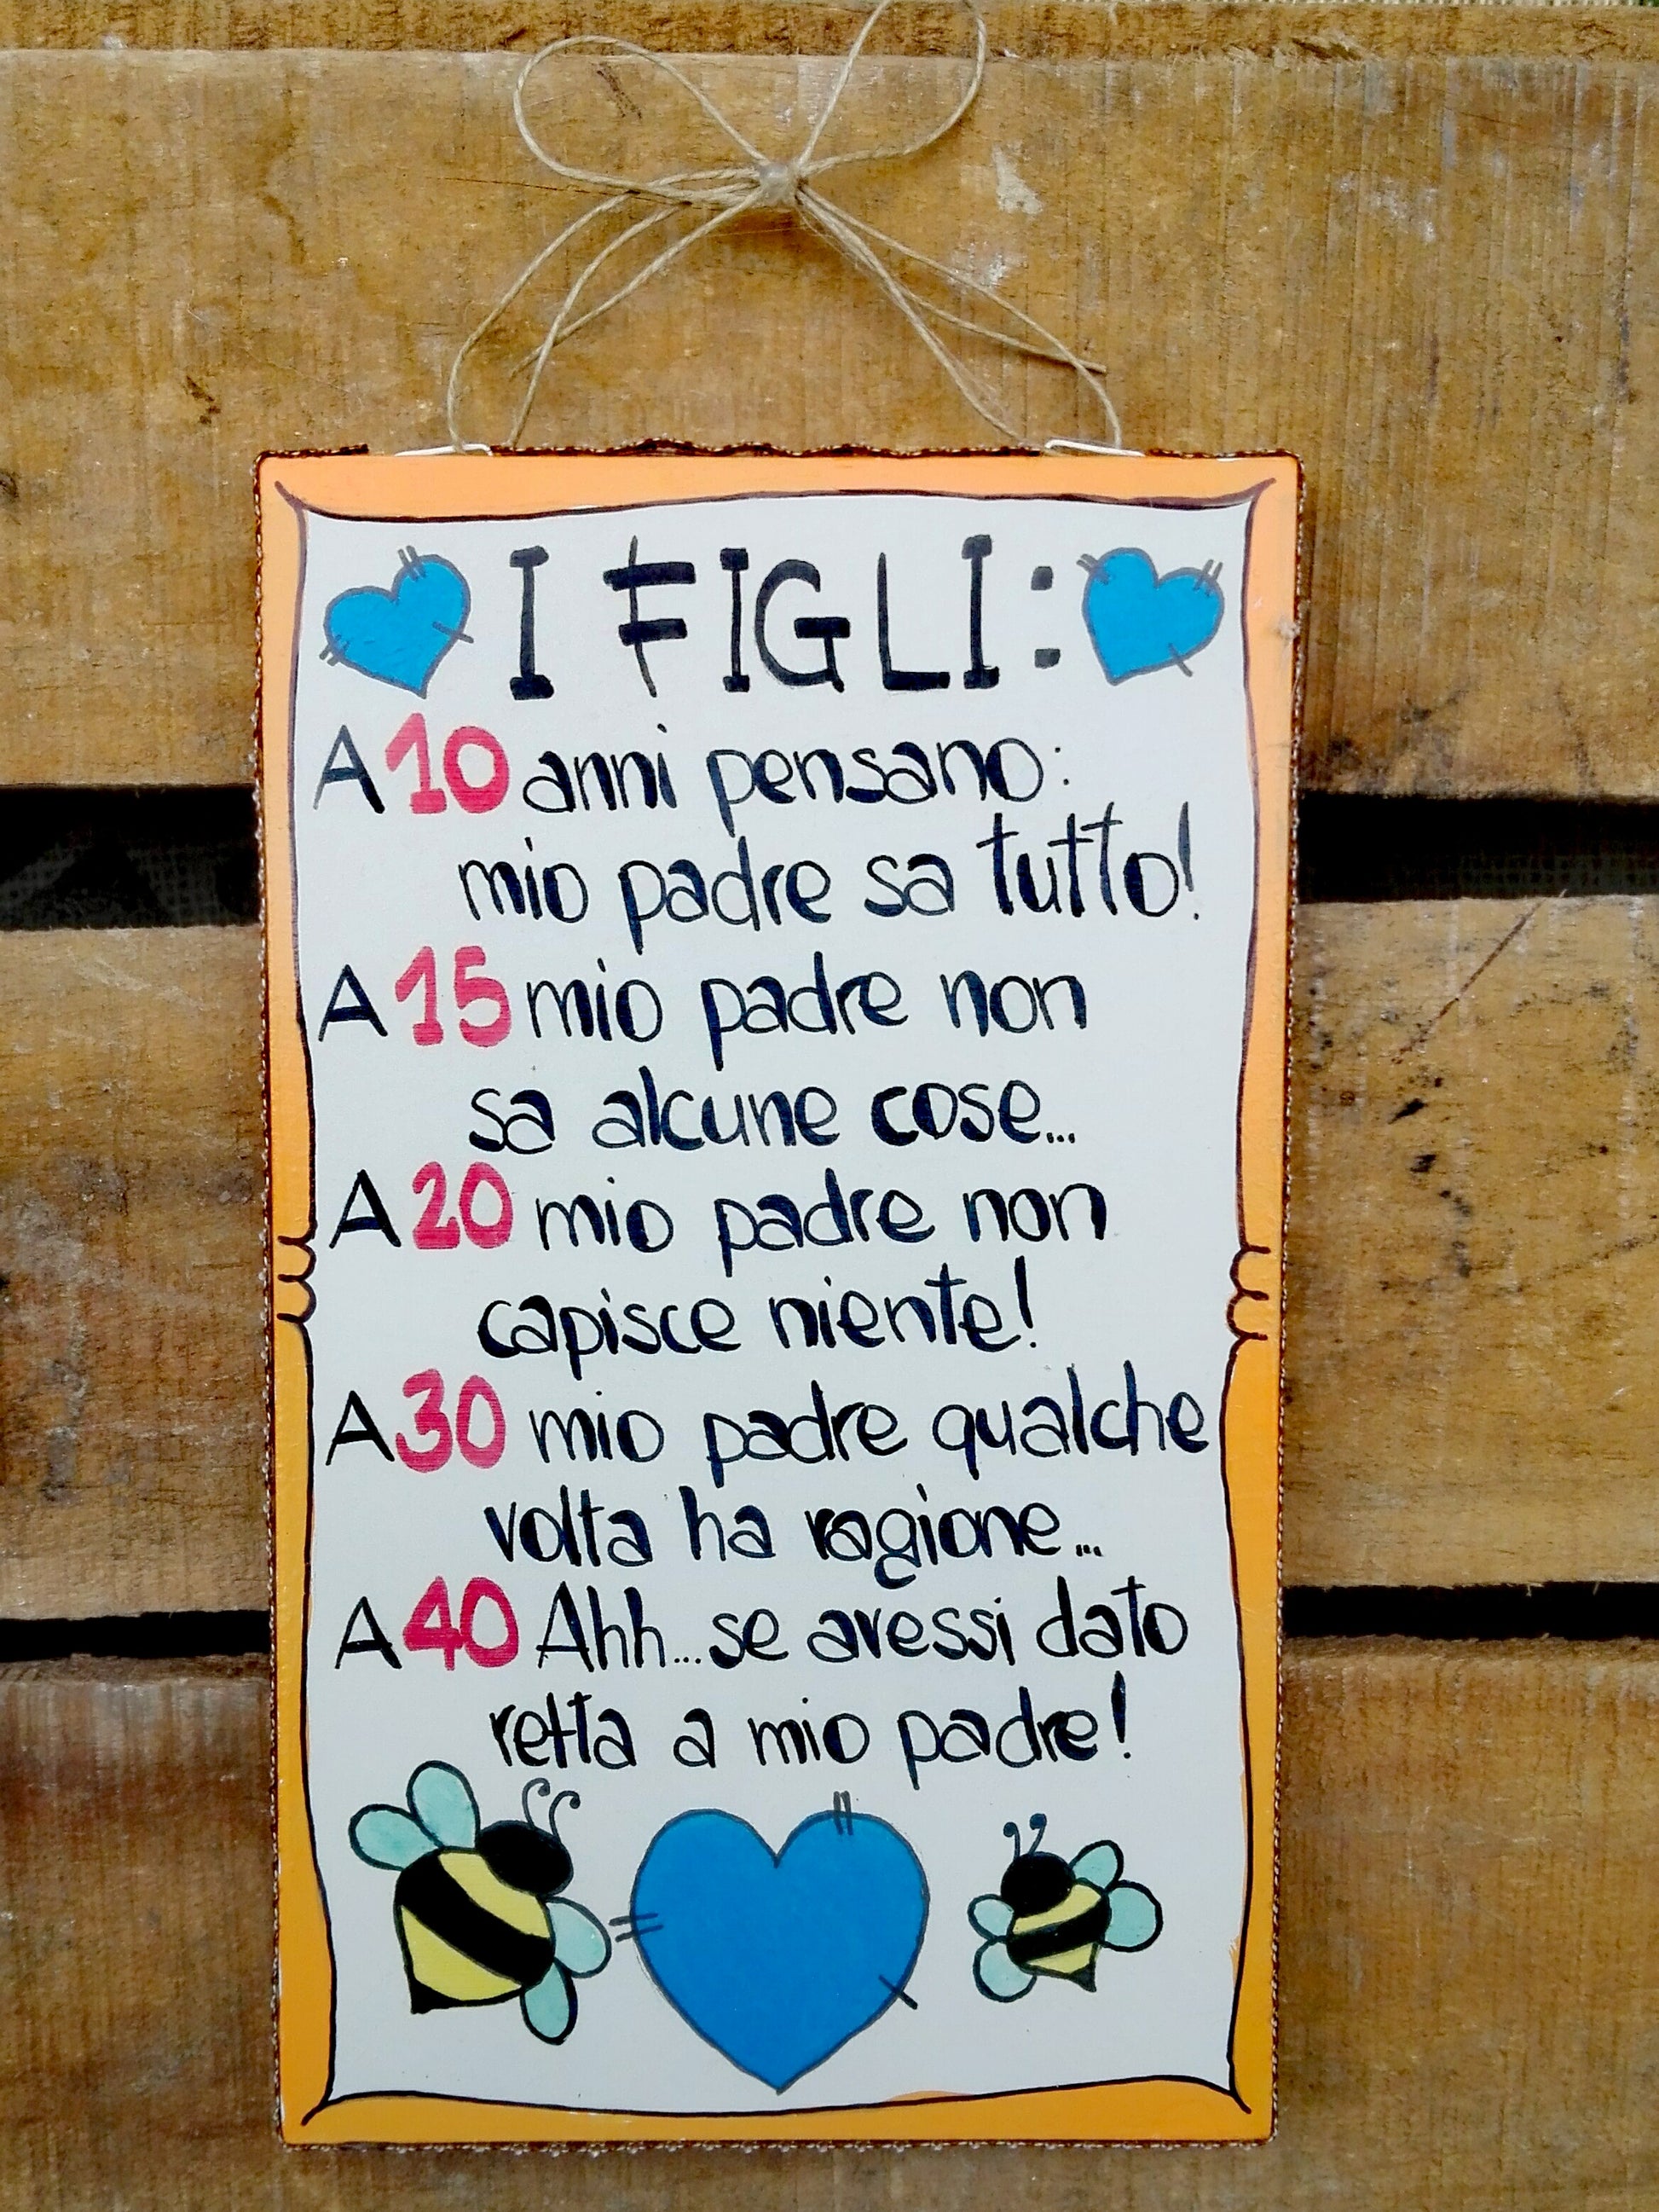 I FIGLI:
A 10 anni pensano:
mio padre sa tutto!
A 15 mio padre non
sa alcune cose...
A 20 mio padre non
capisce niente!
A 30 mio padre qualche
volta ha ragione...
A 40 Ahh...se avessi dato
retta a mio padre!